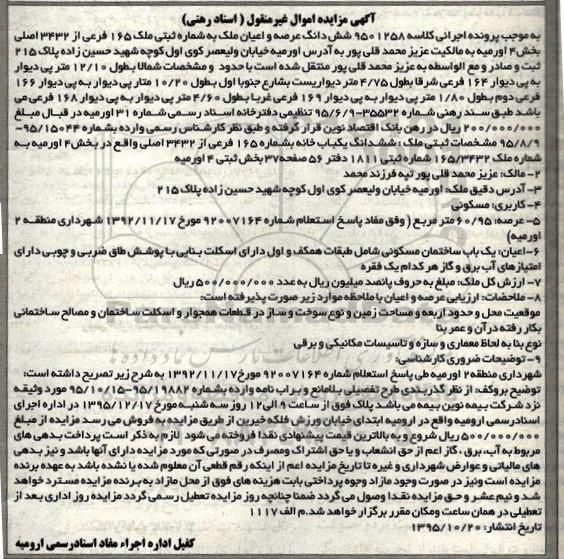 آگهی مزایده اموال غیرمنقول ( اسناد رهنی)
به موجب پرونده اجرائی کلاسه 9501258 شش دانگ عرصه و اعیان ملک به شماره ثبتی ملک 165 فرعی از 3432 اصلی
بخش 4 اورمیه به مالکیت عزیز محمد قلی پور به آدرس اورمیه خیابان ولیعصر کوی اول کوچه شهید حسین زاده پلاک 215
ثبت و صادر و مع الواسطه به عزیز محمد قلی پور منتقل شده است با حدود و مشخصات شمالا بطول 12/10 متر پی دیوار
به پی دیوار 164 فرعی شرقا بطول 4/75 متر دیواریست بشارع جنوبا اول بطول 10/20 متار پی دیوار به پی دیوار 166
فرعی دوم بطول 1/80 متر پی دیوار به پی دیوار 169 فرعی غربا بطول 4/60 متر پی دیوار به پی دیوار 168 فرعی می
باشد طبق سند رهنی شماره 35532-95/6/9 تنظیمی دفترخانه اسناد رسمی شماره 31 اورمیه در قبال مبلغ
200/000/000 ریال در رهن بانک اقتصاد نوین قرار گرفته و طبق نظر کارشناس رسمی وارده بشماره 95/15044-
95/8/9 مشخصات ثبتی ملک : ششدانگ یکباب خانه بشماره 165 فرعی از 3432 اصلی واقع در بخش 4 اورمیه به
شماره ملک 165/3432 شماره ثبتی 1811 دفتر 56 صفحه 37 بخش ثبتی 4 اورمیه
2- مالک: عزیز محمد قلی پور تپه فرزند محمد
3- آدرس دقیق ملک: اورمیه خیابان ولیعصر کوی اول کوچه شهید حسین زاده پلاک 215
4- کاربری: مسکونی
5- عرصه: 60/95 متر مربع ( وفق مفاد پاسخ استعلام شماره 92007164 مورخ 1392/11/17 شهرداری منطقه 2
اورمیه)
6- اعیان: یک باب ساختمان مسکونی شامل طبقات همکف و اول دارای اسکلت بنایی با پوشش طاق ضربی و چوبی دارای
امتیازهای آب برق و گاز هر کدام یک فقره
7- ارزش کل ملک: مبلغ به حروف پانصد میلیون ریال به عدد 500/000/000 ریال
8- ملاحضات: ارزیابی عرصه و اعیان با ملاحظه موارد زیر صورت پذیرفته است:
موقعیت محل و حدود اربعه و مساحت زمین و نوع سوخت و ساز در قطعات همجوار و اسکلت ساختمان و مصالح ساختمانی
بکار رفته در آن و عمر بنا
نوع بنا به لحاظ معماری و سازه و تاسیسات مکانیکی و برقی
9- توضیحات ضروری کارشناسی:
شهرداری منطقه 2 اورمیه طی پاسخ استعلام شماره 92007164 مورخ 1392/11/17 به شرح زیر تصریح داشته است:
توضیح بروکف: از نظر گذربندی طرح تفصیلی بلامانع و برابر نامه وارده بشماره 95/19882-95/10/15 مورد وثیقه
نزد شرکت بیمه نوین بیمه می باشد پلاک فوق از ساعت 9 الی 12 روز سه شنبه مورخ 1395/12/17 در اداره اجرای
اسناد رسمی ارومیه واقع در ارومیه ابتدای خیابان ورزش فلکه خیبر از طریق مزایده به فروش می رسد مزایده از مبلغ
500/000/000 ریال شروع و به بالاترین قیمت پیشنهادی نقدا فروخته می شود لازم به ذکر است پرداخت بدهی های
مربوط به آب، برق، گاز اعم از حق انشعاب و یا حق اشتراک و مصرف در صورتی که مورد مزایده دارای آنها باشد و نیز بدهی
های مالیاتی و عوارض شهرداری و غیره تا تاریخ مزایده اعم از اینکه رقم قطعی آن معلوم شده یا نشده باشد به عهده برنده
مزایده است ونیز در صورت وجود مازاد وجوه پرداختی بابت هزینه های فوق از محل مازاد به برنده مزایده مسترد خواهد
شد و نیم عشر و حق مزایده نقدا وصول می گردد ضمنا چنانچه روز مزایده تعطیل رسمی گردد مزایده روز اداری بعد از
تعطیلی در همان ساعت ومکان مقرر برگزار خواهد شد.م الف 1117
تاریخ انتشار: 1395/10/20
کفیل اداره اجراء مفاد اسنادرسمی ارومیه